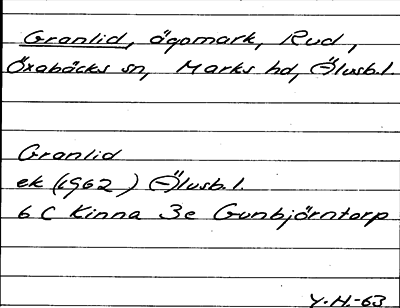 Granlid, ägomark, Rud,
Öxabäcks sn, Marks hd, Älvsb.l.
Granlid
ek (1962) Älvsb.l.
6 C Kinna 3e Gunbjörntorp
Y.H.-63